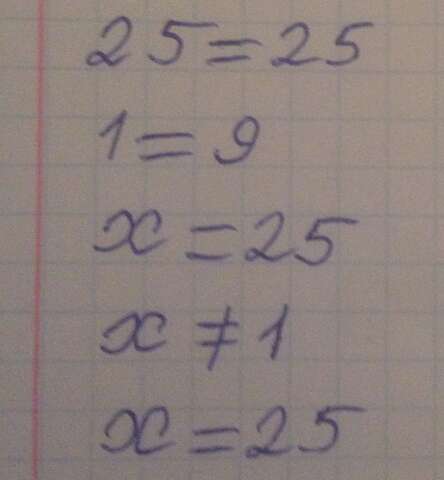 25=25
1=9
x=25
x≠1
x=25